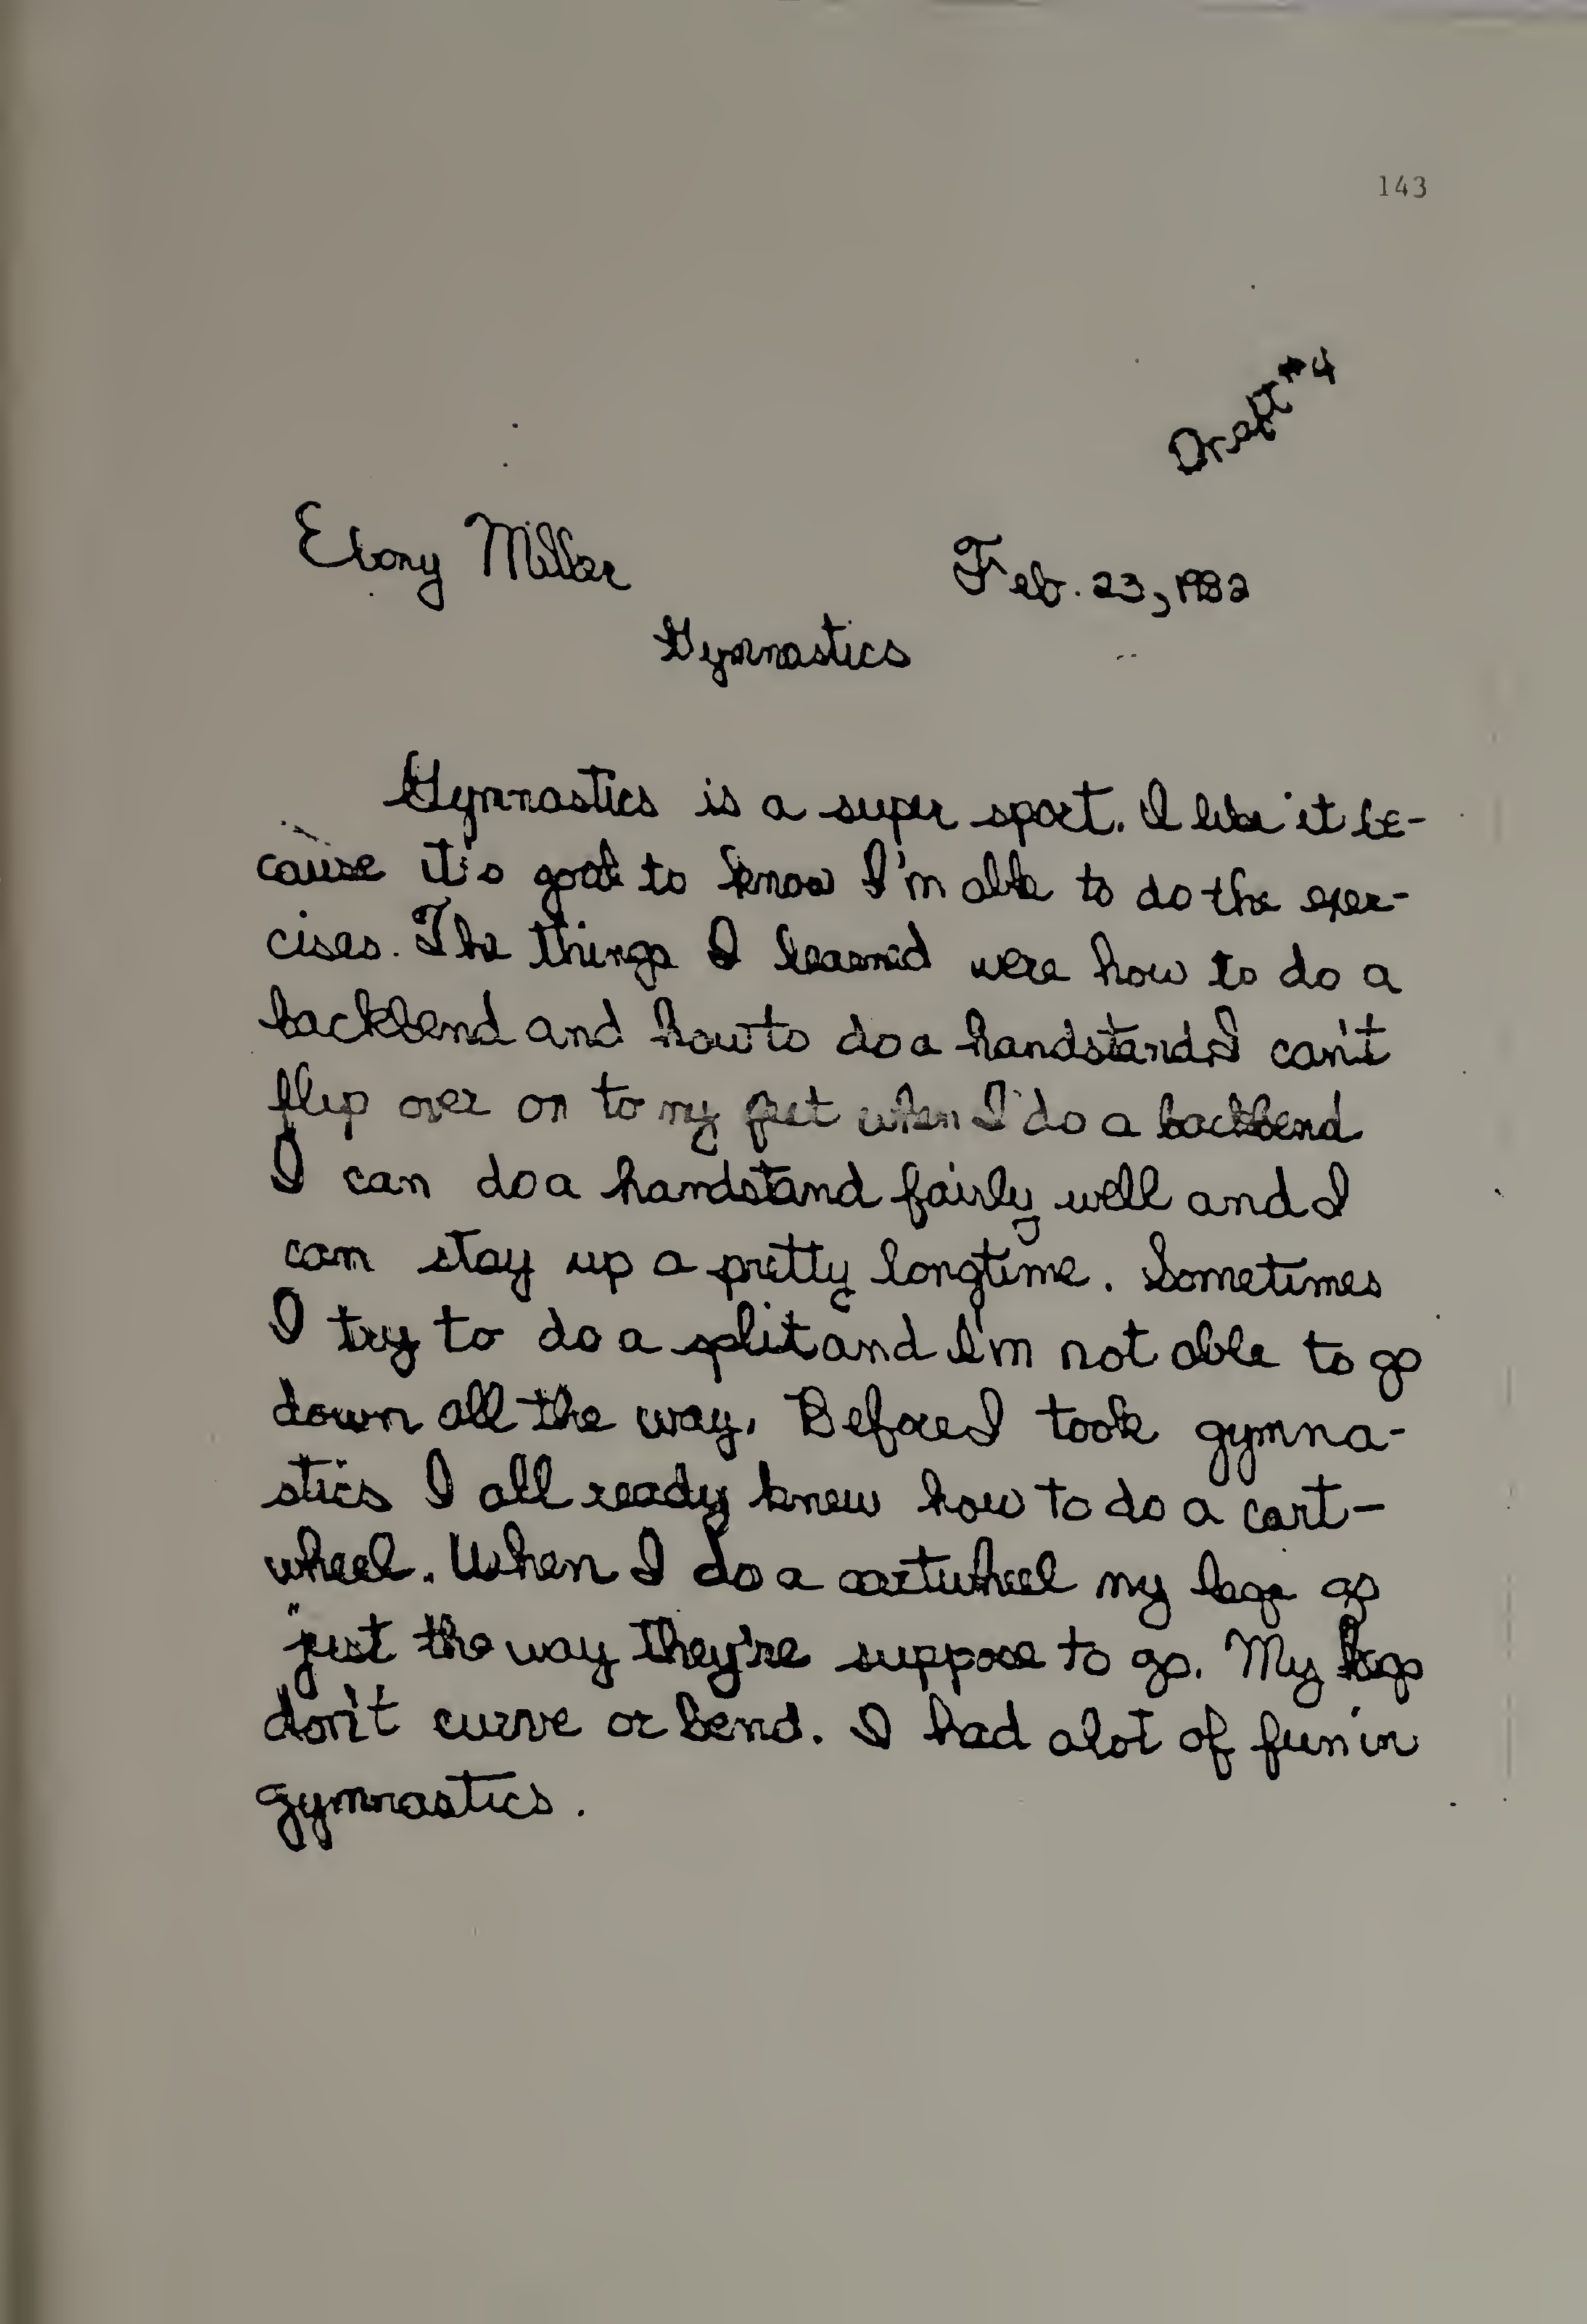 143
Draft #4
Ebony Miller
Feb. 23, 1982
Gymnastics
Gymnastics is a super sport. I like it be-
cause it's good to know I'm able to do the exer-
cises. The things I learned were how to do a
backbend and how to do a handstand I can't
flip over on to my feet when I do a backbend
I can do a handstand fairly well and I
can stay up a pretty longtime. Sometimes
I try to do a split and I'm not able to go
down all the way. Before I took gymna-
stics I all ready knew how to do a cart-
wheel. When I do a cartwheel my legs go
just the way they're suppose to go. My legs
don't curve or bend. I had alot of fun in
gymnastics.